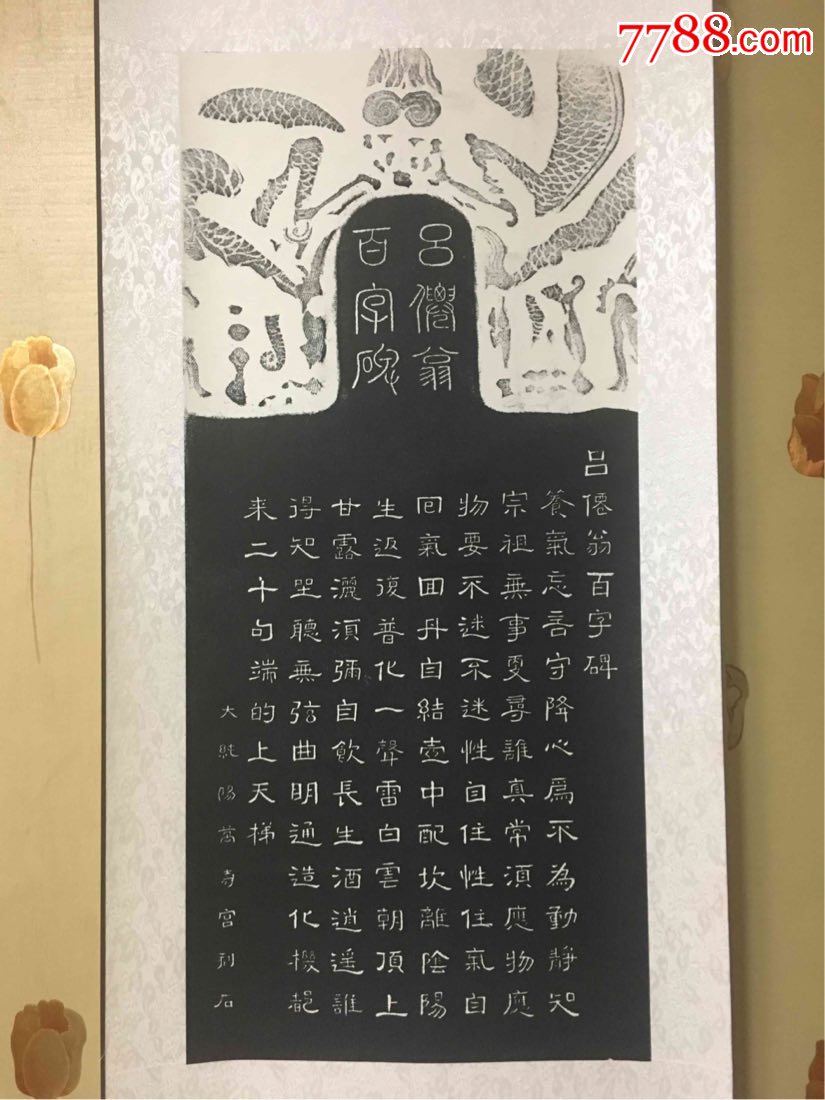 7788.com
呂僊翁
百字碑
呂僊翁百字碑
養氣忘言守降心爲不為動靜知
宗祖無事更尋誰真常須應物應
物要不迷不迷性自住性住氣自
回氣回丹自結壺中配坎離陰陽
生返復普化一聲雷白雲朝頂上
甘露灑須彌自飲長生酒逍遥誰
得知坐聽無弦曲明通造化機都
来二十句端的上天梯
大純陽萬壽宮刻石